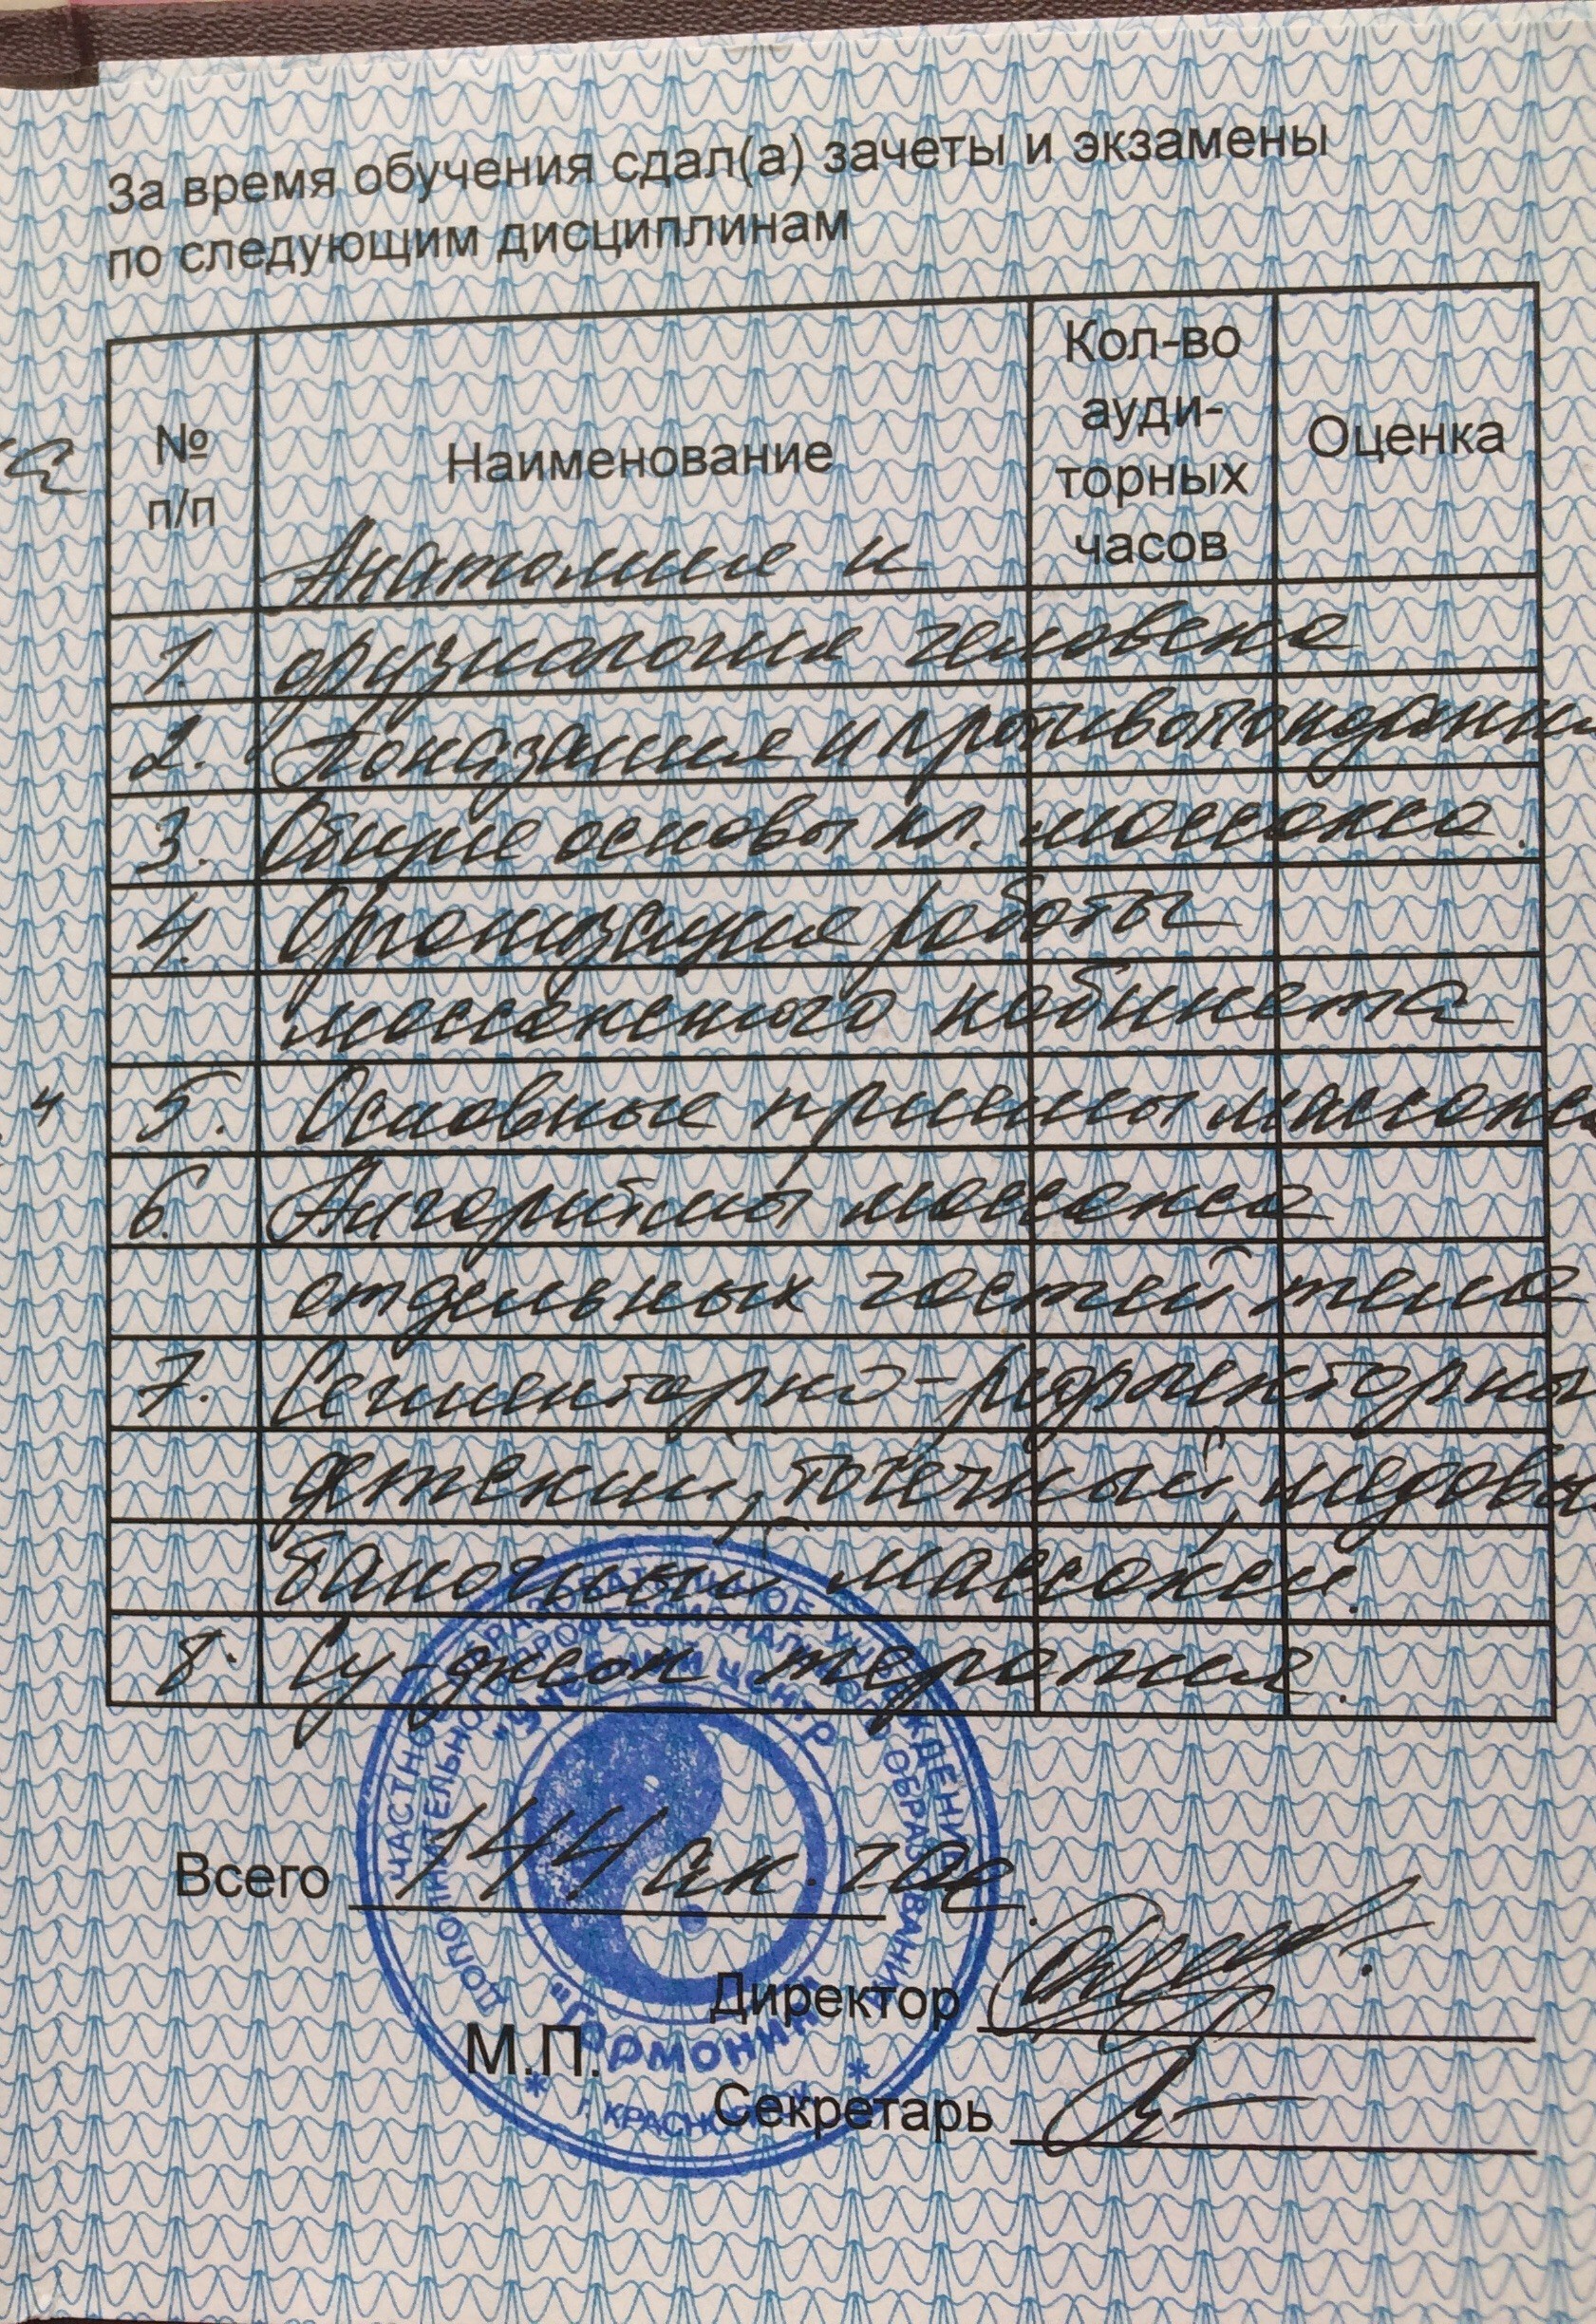 За время обучения сдал(а) зачеты и экзамены
по следующим дисциплинам
№ п/п
Наименование
Кол-во ауди-торных часов
Оценка
Анатомия и
1. физиология человека
2. Показания и противопоказания
3. Общие основы кл. массажа.
4. Организация работы
массажного кабинета
5. Основные приемы массажа
6. Алгоритмы массажа
отдельных частей тела
7. Сегментарно-рефлекторный
детский, точечный, медовый
баночный массажи.
8. Су-джок терапия.
Всего 144 ак. час.
Директор
М.П.
Секретарь
ЧАСТНОЕ ОБРАЗОВАТЕЛЬНОЕ УЧРЕЖДЕНИЕ
ДОПОЛНИТЕЛЬНОГО ПРОФЕССИОНАЛЬНОГО ОБРАЗОВАНИЯ
"УЧЕБНЫЙ ЦЕНТР
"Гармония"